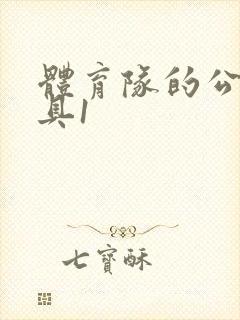 體育隊的公
具1
七寶酥